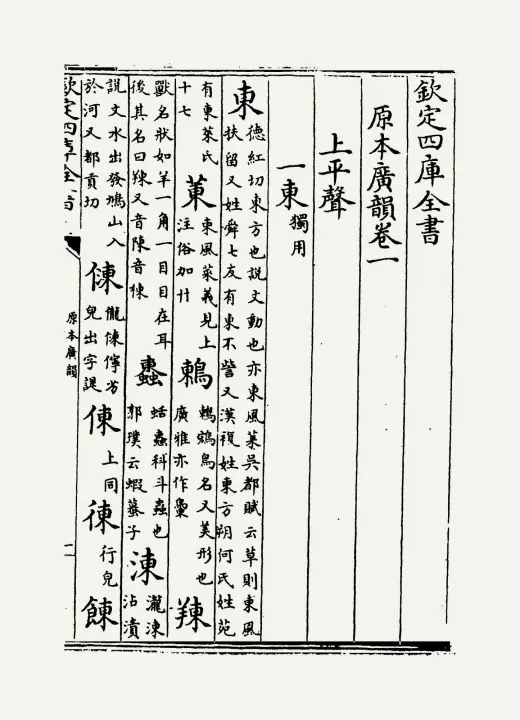 欽定四庫全書
原本廣韻卷一
上平聲
一東獨用
東德紅切東方也說文動也亦東風菜吳都賦云草則東風
扶留又姓舜七友有東不訾又漢複姓東方朔何氏姓苑
有東萊氏
十七
菄東風菜義見上
注俗加艹
鶇鶇鵍鳥名又美形也
廣雅亦作
䍶
獸名狀如羊一角一目目在耳
後其名曰䍶又音陳音棟
𧓕蛞𧓕科斗蟲也
郭璞云蝦蟇子
涷瀧涷
沾漬
說文水出發鳩山入
於河又都貢切
𠍀儱𠍀儜劣
皃出字諟
倲上同
徚行皃
𩜍
欽定四庫全書
原本廣韻